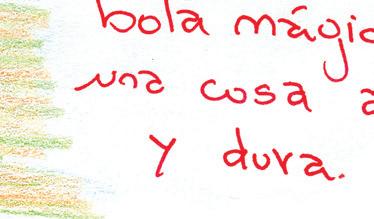 bola mágic
una cosa a
y dura.